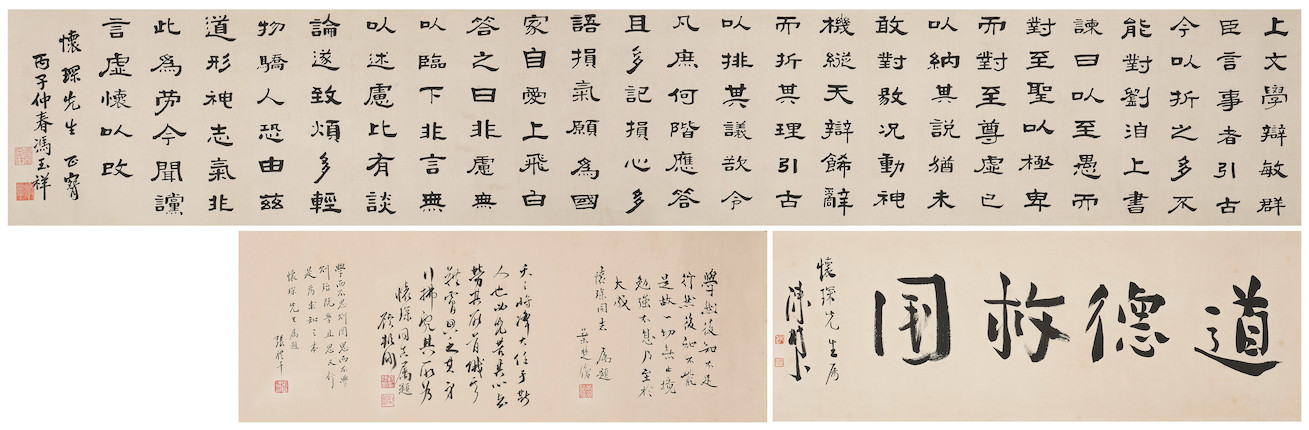 上文學辯敏群
臣言事者引古
今以折之多不
能對劉洎上書
諫曰以至愚而
對至聖以極卑
而對至尊虛已
以納其說猶未
敢對敭况動神
機縱天辯餙辭
而折其理引古
以排其議欲令
凡庶何階應答
且多記損心多
語損氣願為國
家自愛上飛白
答之曰非慮無
以臨下非言無
以述慮比有談
論遂致煩多輕
物驕人恐由茲
道形神志氣非
此為勞今聞讜
言虛懷以改
懷琛先生正
丙子仲春馮玉祥
道德救国
懷琛先生屬
陳樹人
學然後知不足
行然後知不能
是故一切無止境
勉強不息乃至於
大成
懷琛同志屬題
葉楚傖
天之將降大任于斯
人也必先苦其心志
勞其筋骨餓其
膚空乏其身
行拂亂其所為
懷琛同志屬題
學而不思則罔思而不學
則殆既學且思又行
是為求知之本
懷琛先生屬題